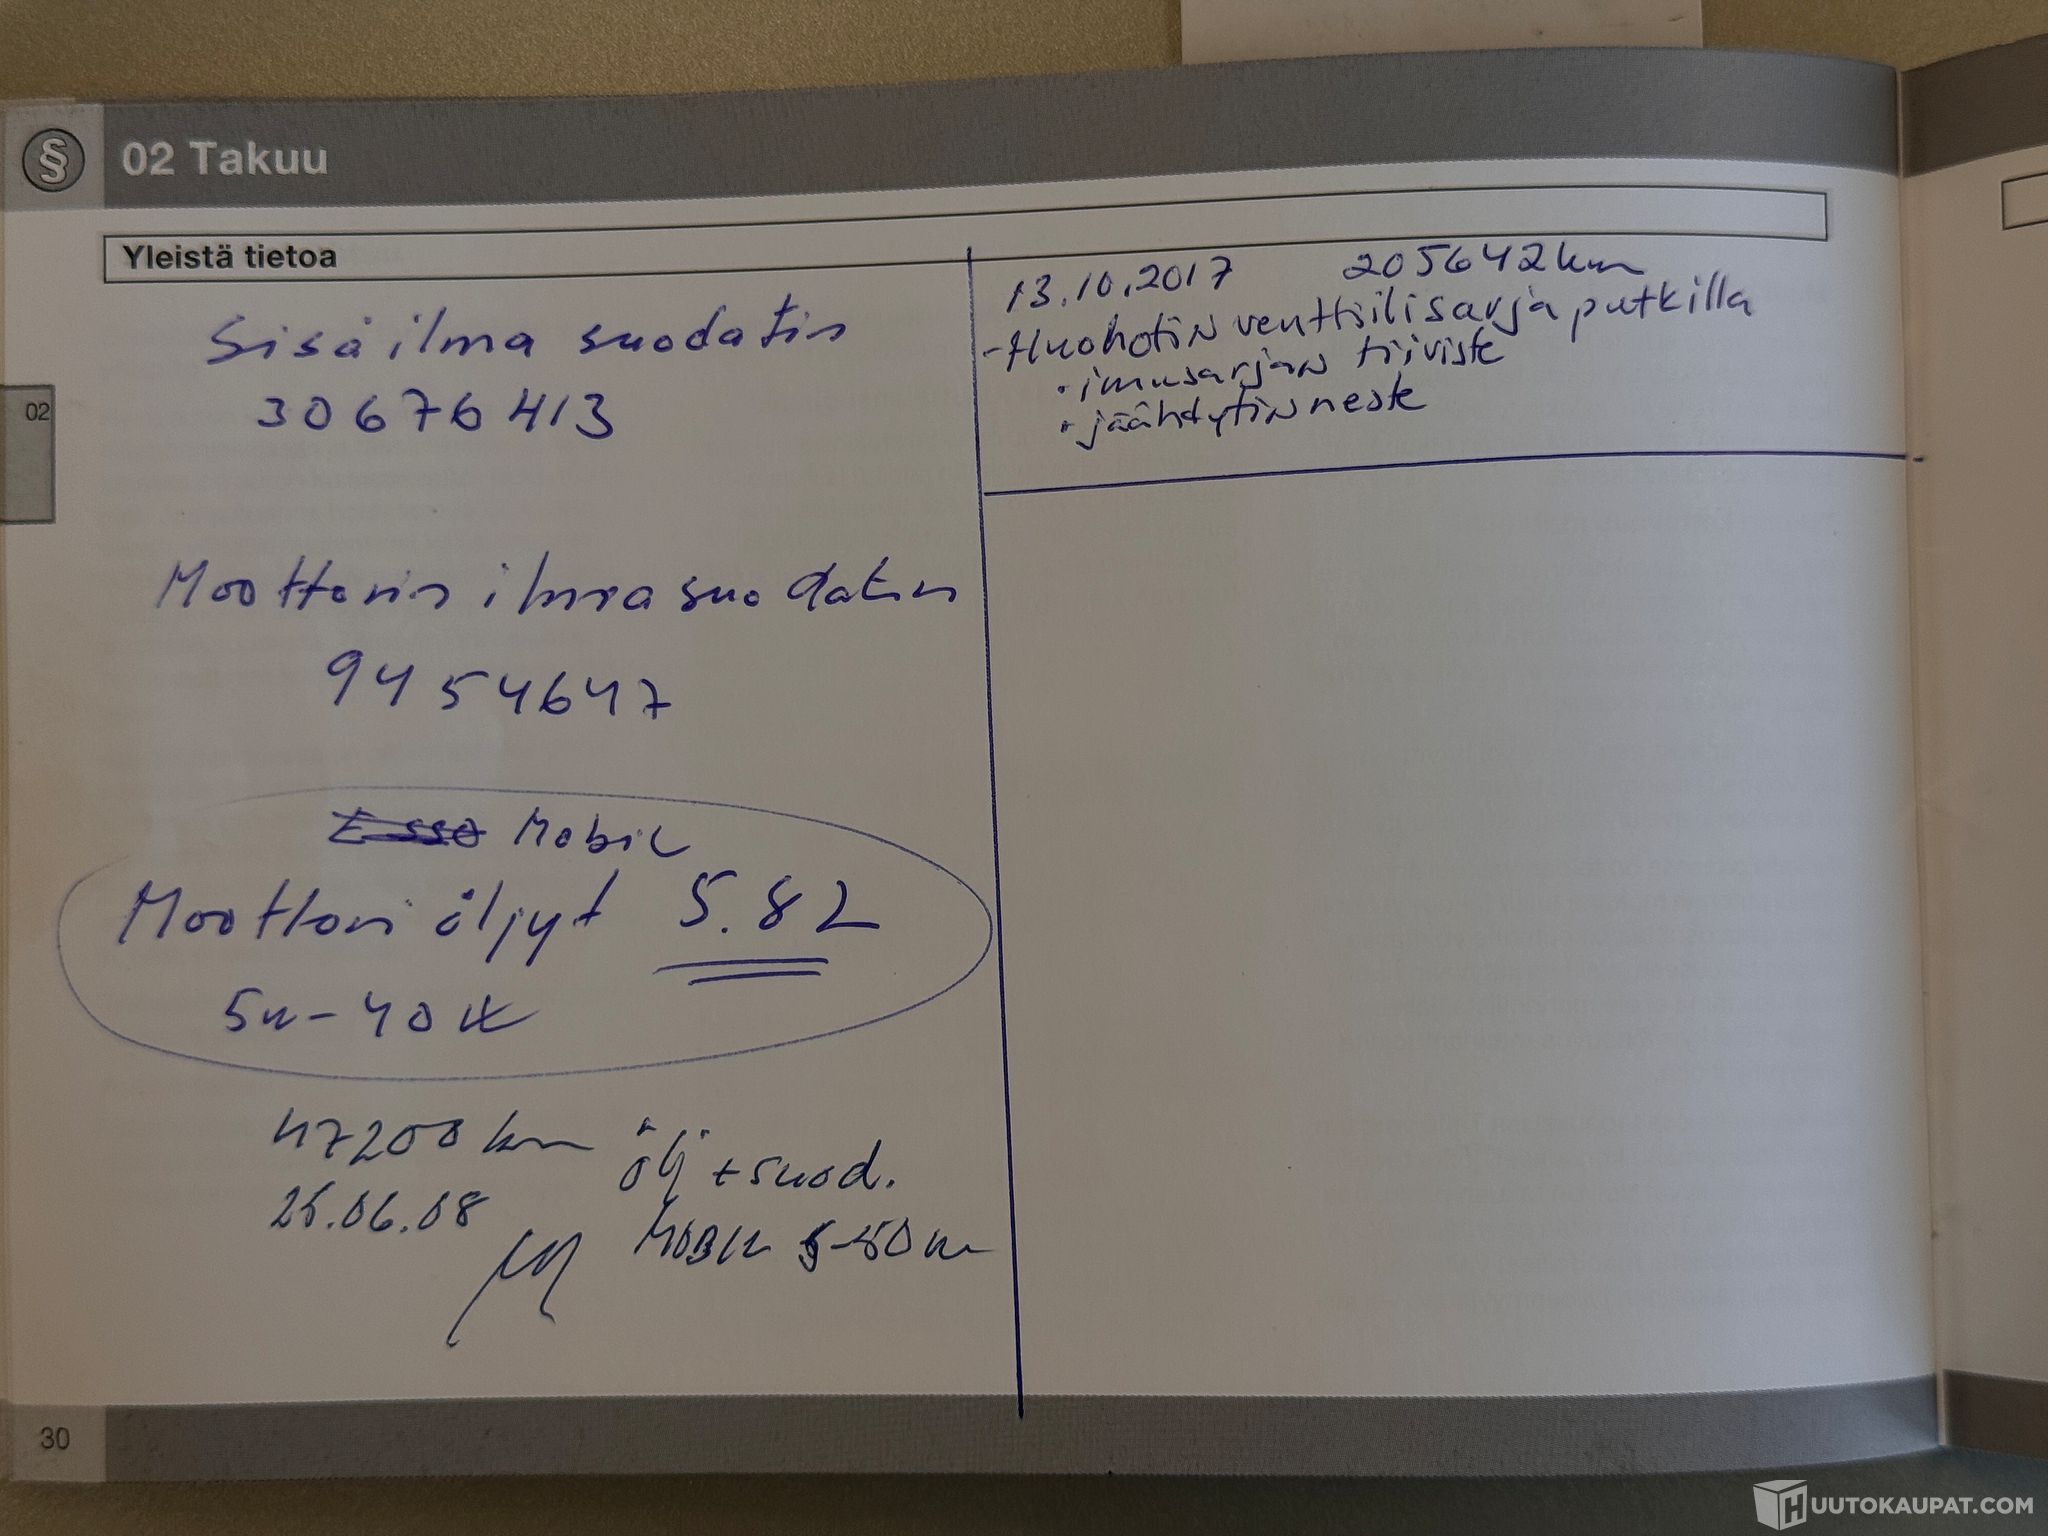 02 Takuu
Yleistä tietoa
Sisäilma suodatin
30676413
Moottorin ilmasuodatin
9454647
Esso Mobil
Moottori öljyt 5.82
5w-40
47200 km ölj + suod.
26.06.08
Mobil 5-50w
13.10.2017 205642km
-Huohotin venttiilisarja putkilla
• imusarjan tiiviste
• jäähdytinneste
02
30
HUUTOKAUPAT.COM